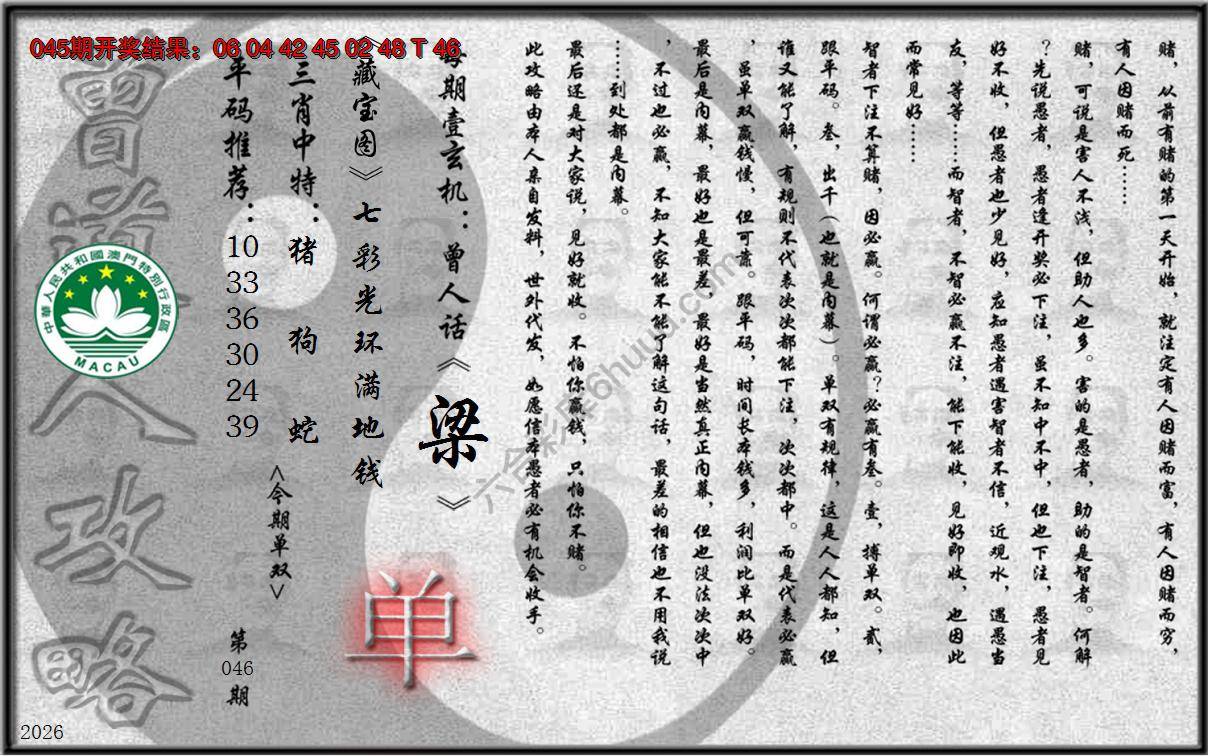 045期开奖结果：06 04 42 45 02 48 T 46
赌，从前有赌的第一天开始，就注定有人因赌而富，有人因赌而穷，
有人因赌而死……
赌，可说是害人不浅，但助人也多。害的是愚者，助的是智者。何解
？先说愚者，愚者逢开奖必下注，虽不知中不中，但也下注，愚者见
好不收，但愚者也少见好，应知愚者遇害智者不信，近观水，遇愚当
友，等等……而智者，不智必赢不注，能下能收，见好即收，也因此
而常见好……
智者下注不算赌，因必赢。何谓必赢？必赢有叁。壹，搏单双。贰，
跟平码。叁，出千（也就是内幕）。单双有规律，这是人人都知，但
谁又能了解，有规则不代表次次都能下注，次次都中。而是代表必赢
，虽单双赢钱慢，但可靠。跟平码，时间长本钱多，利润比单双好。
最后是内幕，最好也是最差，最好是当然真正内幕，但也没法次次中
，不过也必赢，不知大家能不能了解这句话，最差的相信也不用我说
……到处都是内幕。
最后还是对大家说，见好就收。不怕你赢钱，只怕你不赌。
此攻略由本人亲自发料，世外代发，如愿信本愚者必有机会收手。
每期壹玄机：曾人话《梁》
《藏宝图》七彩光环满地钱
三肖中特：猪 狗 蛇
平码推荐：10 33 36 30 24 39
<今期单双>
单
第046期
曾道人攻略
中華人民共和國澳門特別行政區
MACAU
六合彩库6huuu.com
2026